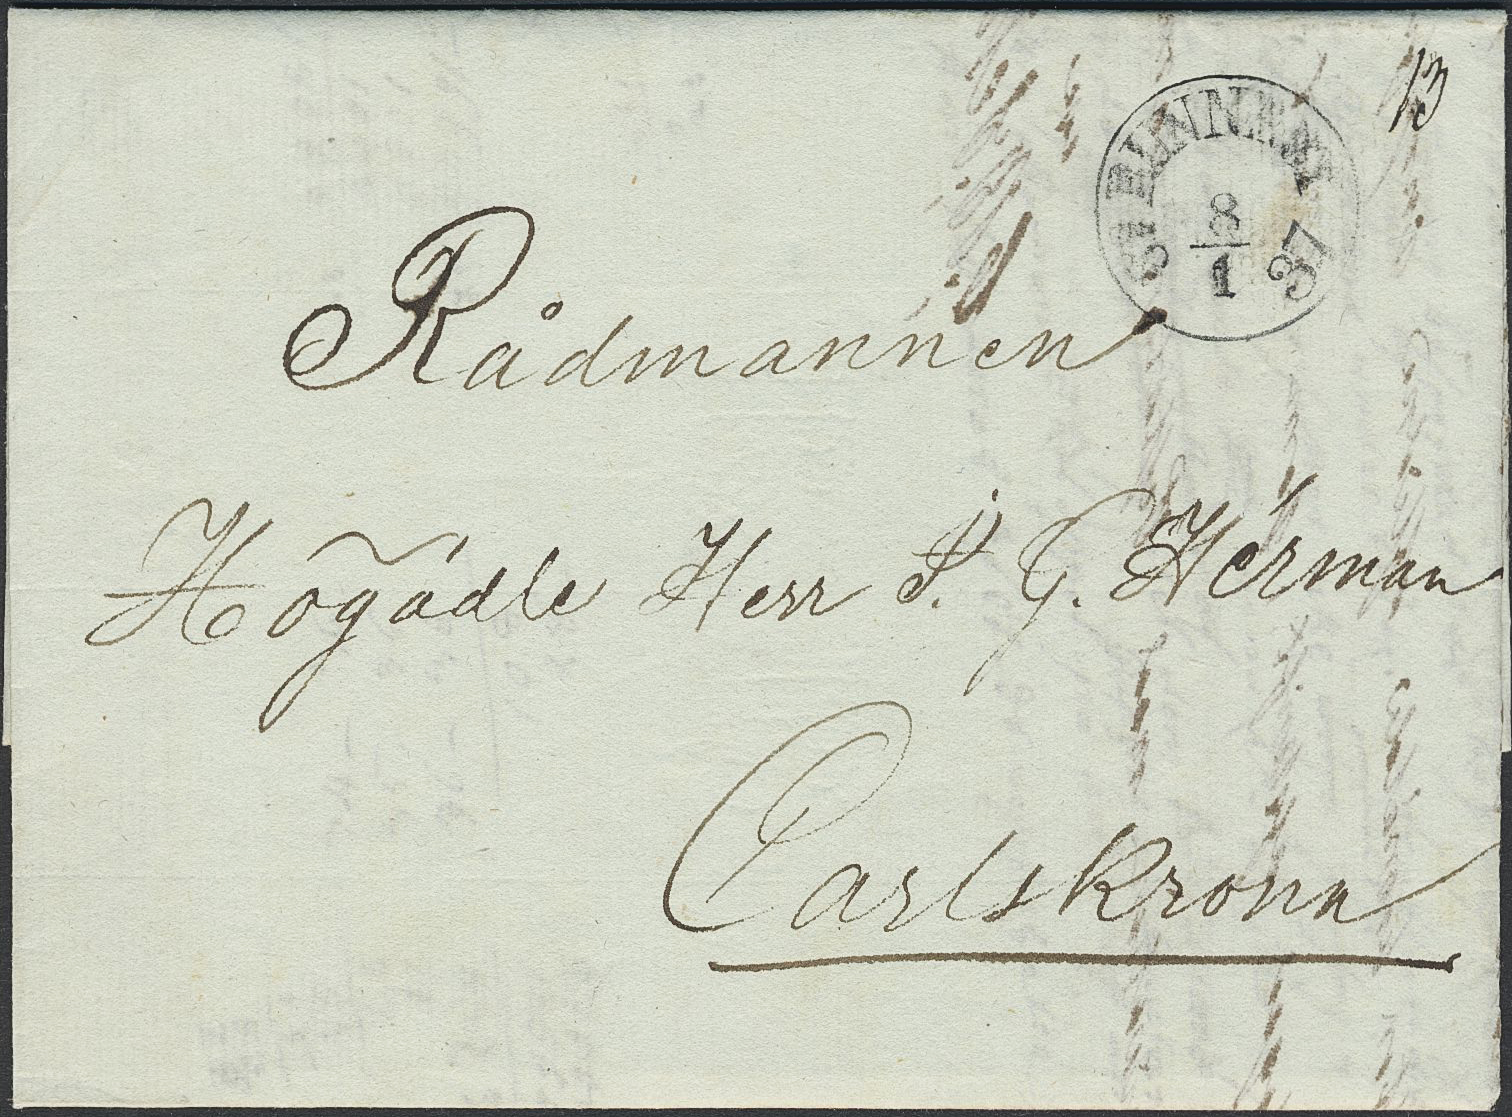 13
8
1
37
Rådmannen
Högädle Herr P. G. Herman
Carlskrona